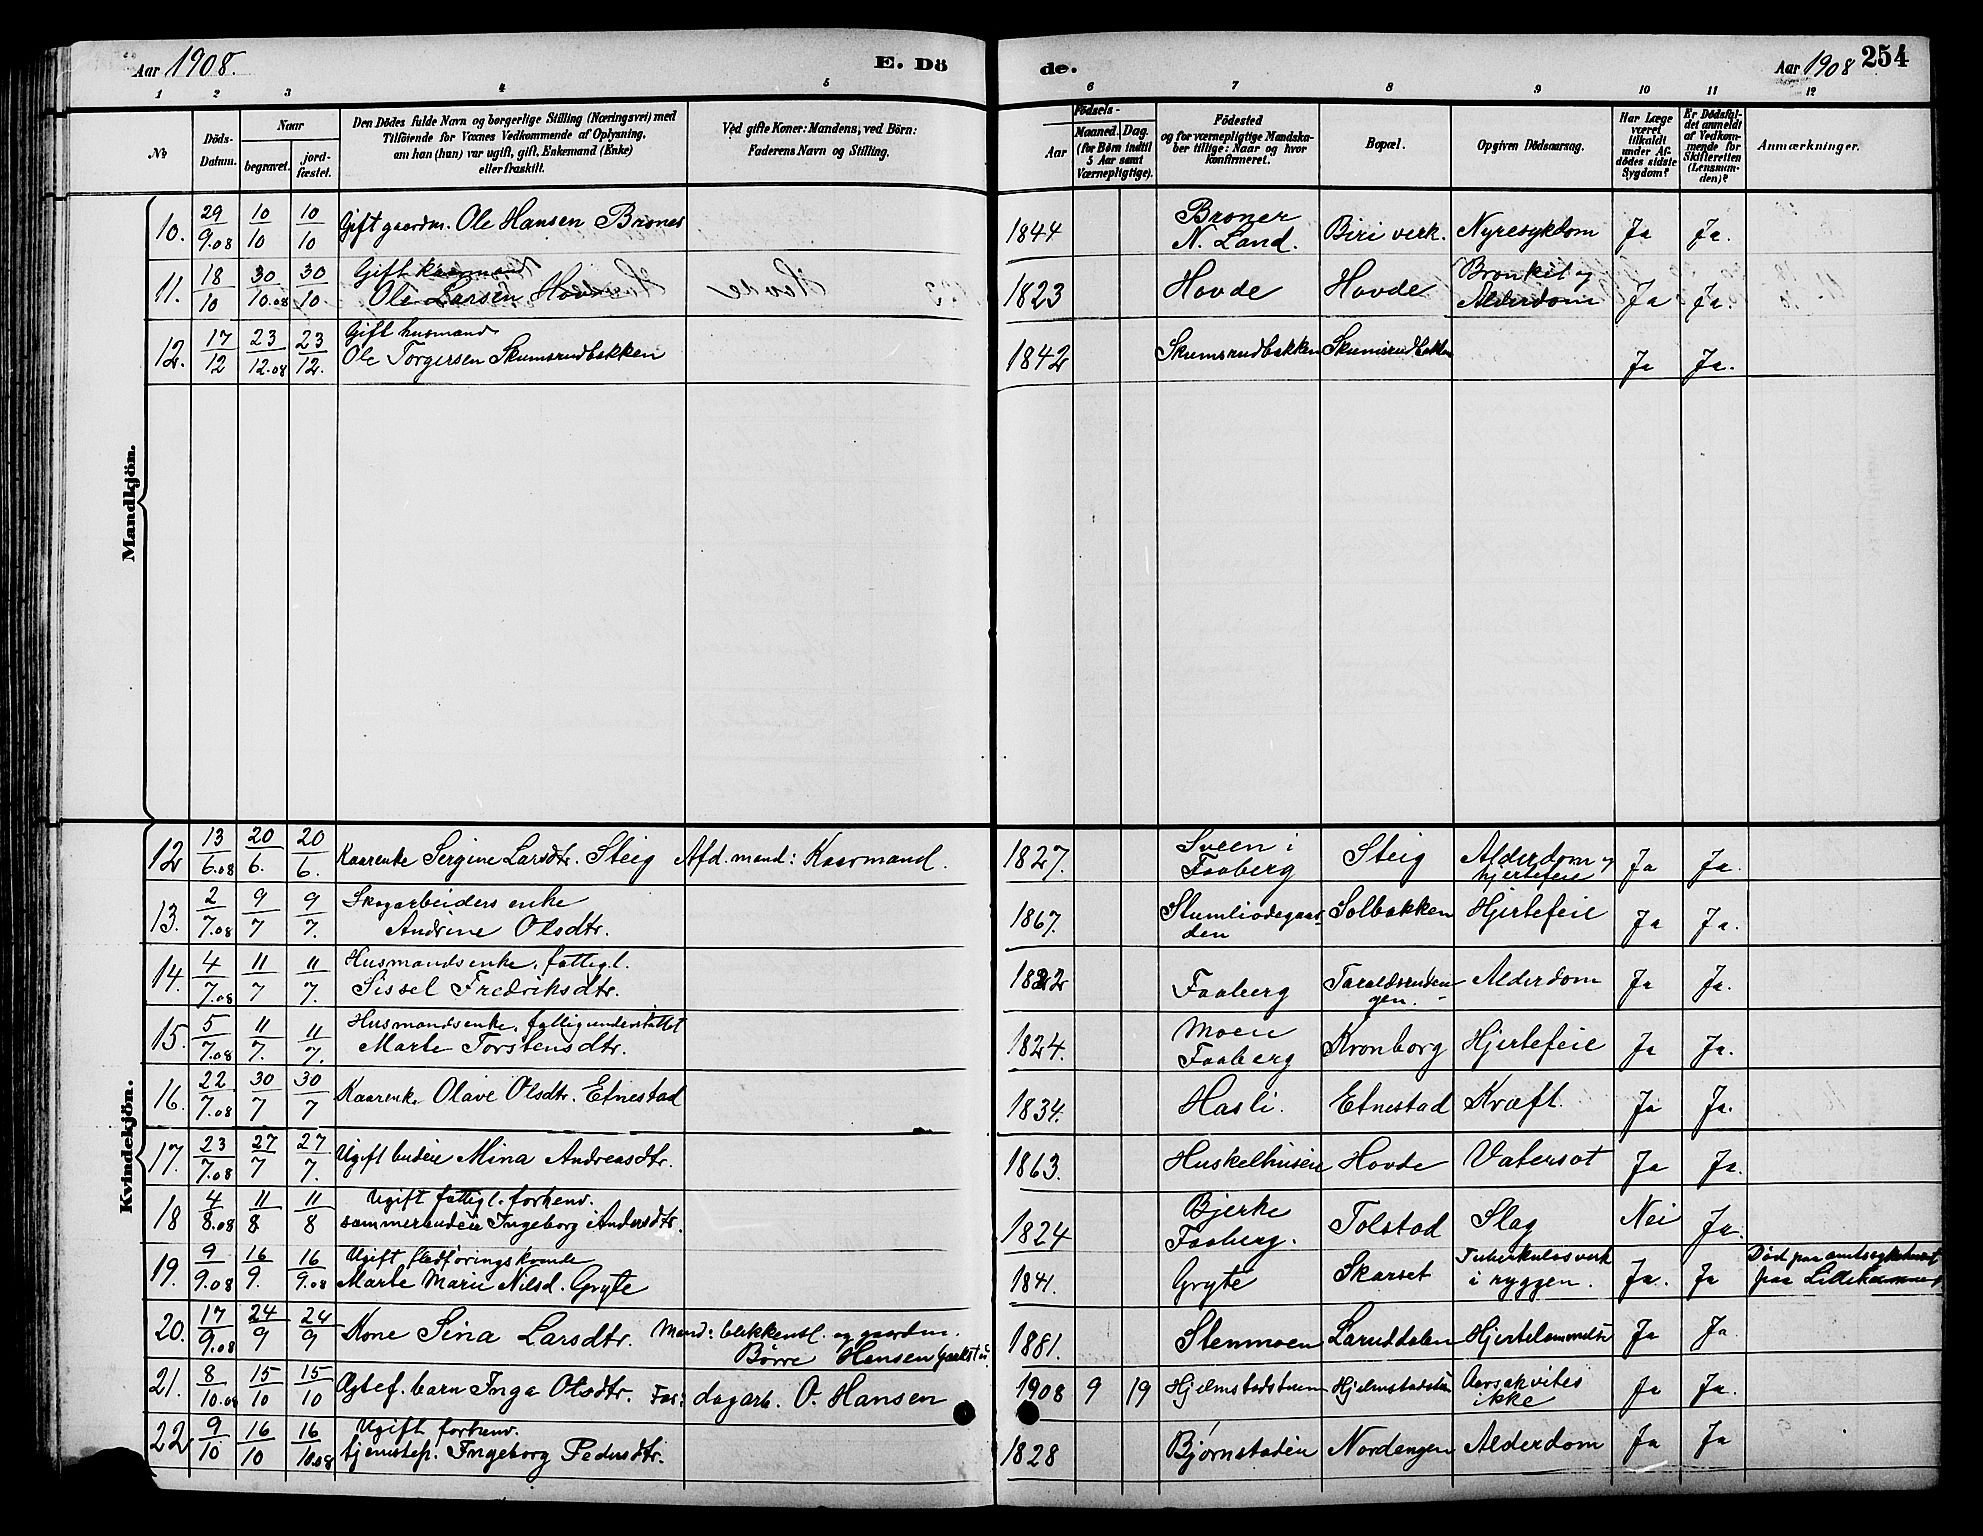 Aar 1908.
E. Dö
de.
Aar 1908
254
1 2 3 4 5 6 7 8 9 10 11 12
№
Döds-
Datum.
Naar
begravet.
jord-
fæstet.
Den Dödes fulde Navn og borgerlige Stilling (Næringsvei) med
Tilföiende for Voxnes Vedkommende af Oplysning,
om han (hun) var ugift, gift, Enkemand (Enke)
eller fraskilt.
Ved gifte Koner: Mandens, ved Börn:
Faderens Navn og Stilling.
Födsels-
Aar
Maaned.
Dag.
(for Børn indtil
5 Aar samt
Værnepligtige).
Födested
og for værnepligtige Mandska-
ber tillige: Naar og hvor
konfirmeret.
Bopæl.
Opgiven Dödsaarsag.
Har Læge
været
tilkaldt
under Af-
dödes sidste
Sygdom?
Er Dödsfal-
det anmeldt
af Vedkom-
mende for
Skifteretten
(Lensman-
den)?
Anmærkninger.
Mandkjön.
10. 29/9.08 10/10 10/10 Gift gaardm. Ole Hansen Broner 1844 Broner N. Land. Biri verk. Nyresykdom Ja Ja.
11. 18/10 30/10.08 30/10 Gift kaarmand Ole Larsen Hovde 1823 Hovde Hovde Bronkit og Alderdom Ja Ja.
12. 17/12 23/12.08 23/12. Gift husmand Ole Torgersen Skumsrudbakken 1842 Skumsrudbakken Skumsrudbakken Ja Ja.
Kvindekjön.
12 13/6.08 20/6. 20/6. Kaarenke Sergine Larsdtr. Steig Afd. mand: Kaarmand. 1827. Sveen i Faaberg Steig Alderdom og hjertefeie Ja Ja.
13. 2/7.08 9/7 9/7. Skogarbeiders enke Andrine Olsdtr. 1867. Stumliødegaarden Solbakken Hjertefeie Ja Ja.
14. 4/7.08 11/7 11/7. Husmandsenke, fattigl. Sissel Fredriksdtr. 1822 Faaberg Taraldsrudengen. Alderdom Ja Ja.
15. 5/7.08 11/7. 11/7. Husmandsenke, fattigunderstøttet Marte Torstensdtr. 1824. Moen Faaberg Kronborg Hjertefeie Ja Ja.
16. 22/7.08 30/7 30/7 Kaarenke Olave Olsdtr. Etnestad 1834. Hasli. Etnestad Kræft. Ja Ja.
17. 23/7.08 27/7 27/7. Ugift budeie Mina Andreasdtr. 1863. Huskelhusen Hovde Vatersot Ja Ja.
18 4/8.08 11/8 11/8 Ugift fattigl. forhenv. sommerbudeie Ingeborg Andersdtr. 1824 Bjerke Faaberg. Tolstad Slag Nei Ja.
19. 9/9.08 16/9. 16/9.08 Ugift fledføringskvinde Marte Marie Nilsd. Gryte 1841. Gryte Skarset Tuberkuløs verk i ryggen. Ja. Ja Død paa amtssykehuset paa Lillehammer
20. 17/9.08 24/9 24/9 Kone Sina Larsdtr. Mand: blikkensl. og gaardm. Børre Hansen 1881. Stenmoen Laruddalen Hjertelammelse Ja Ja.
21. 8/10.08 15/10 15/10 Egtef. barn Inga Olsdtr. Far: dagarb. O. Hansen 1908 9 19 Hjelmstadstuen Hjelmstadstuen Aarsak vites ikke Ja Ja.
22 9/10 16/10 16/10.08 Ugift forhenv. tjenestep. Ingeborg Pedersdtr. 1828 Bjørnstadeie Nordengen Alderdom Ja Ja